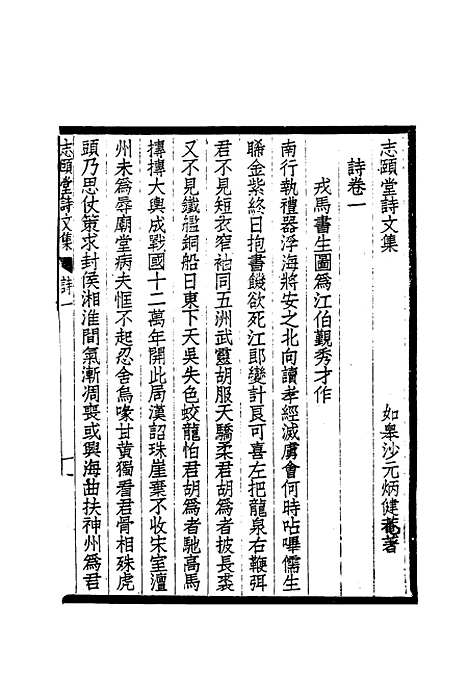 志頤堂詩文集
如皋沙元炳健菴著
詩卷一
戎馬書生圖爲江伯覲秀才作
南行執禮器浮海將安之北向讀孝經滅虜會何時呫嗶儒生
睎金紫終日抱書饑欲死江郎變計良可喜左把龍泉右鞭弭
君不見短衣窄袖同五洲武靈胡服天驕柔君胡爲者披長裘
又不見鐵艦銅船日東下天吳失色蛟龍怕君胡爲者馳高馬
摶摶大輿成戰國十二萬年開此局漢詔珠崖棄不收宋室澶
州未爲辱廟堂病夫恇不起忍舍烏喙甘黃獨看君骨相殊虎
頭乃思仗策求封侯湘淮間氣漸凋喪或興海曲扶神州爲君
志頤堂詩文集
詩一
一